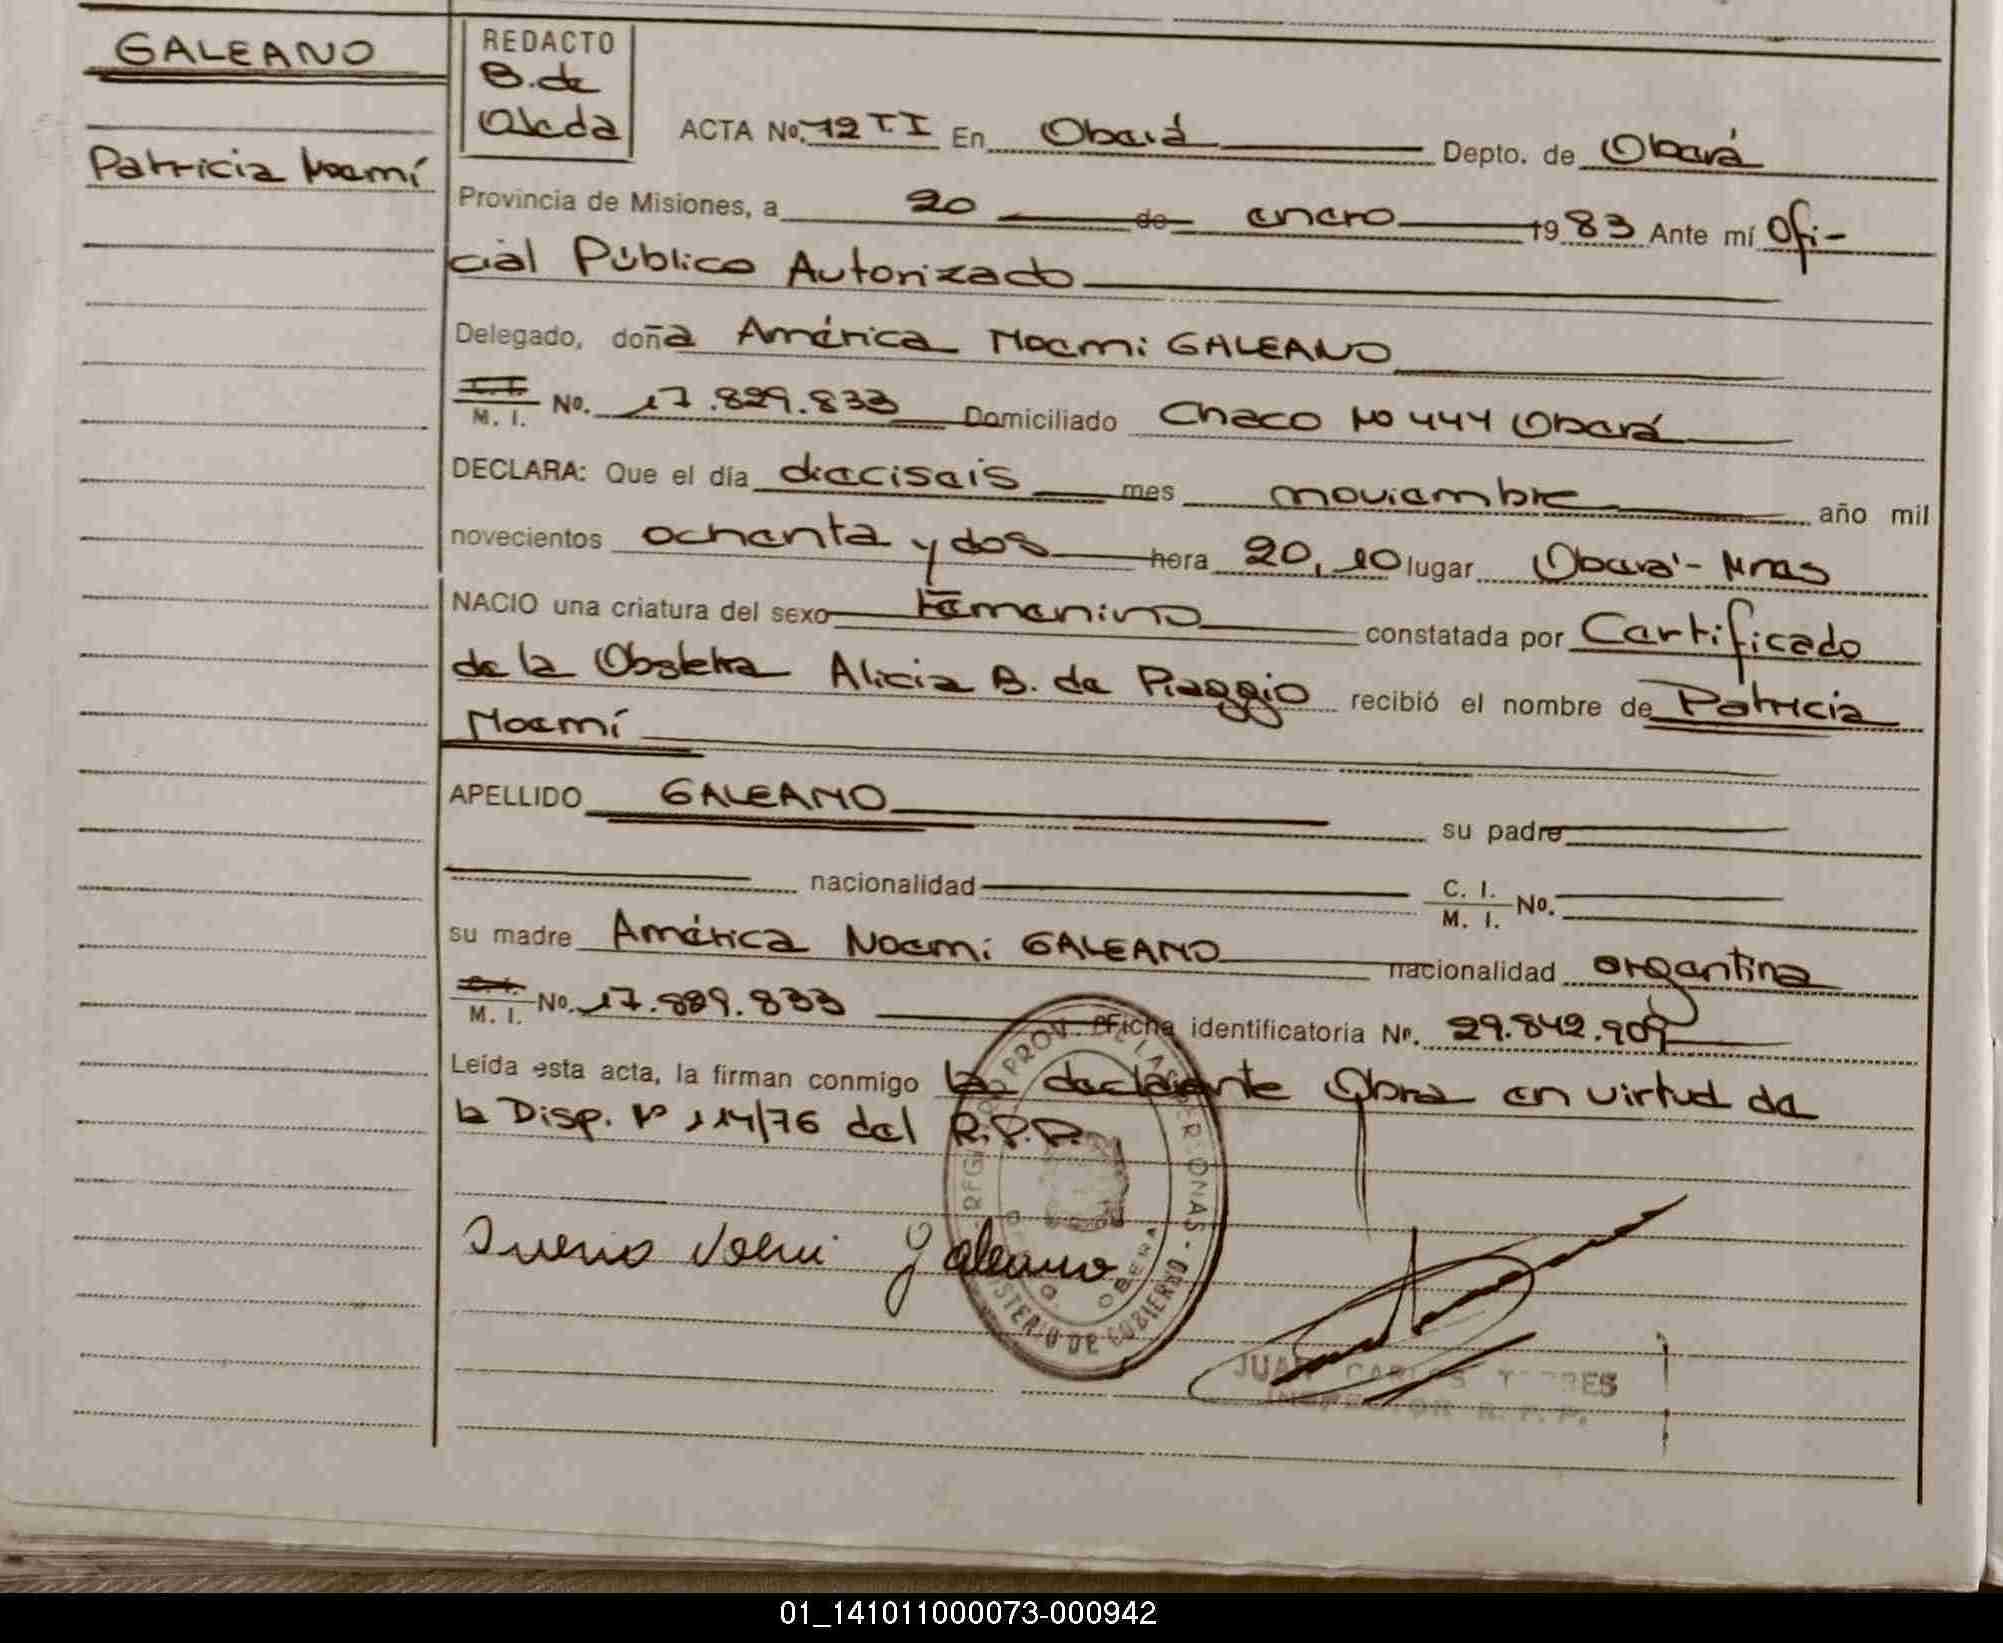 GALEANO
Patricia Noemí
REDACTO
B. de
Oleda
ACTA No. 72 T. I En Oberá Depto. de Oberá
Provincia de Misiones, a 20 de enero 1983 Ante mí Ofi-
cial Público Autorizado
Delegado, doña América Noemi GALEANO
M. I. No. 17.829.833 Domiciliado Chaco No 444 Oberá
DECLARA: Que el día dieciseis mes noviembre año mil
novecientos ochenta y dos hora 20,10 lugar Oberá - Mnes
NACIO una criatura del sexo femenino constatada por Certificado
de la Obstetra Alicia B. de Piaggio recibió el nombre de Patricia
Noemí
APELLIDO GALEANO su padre
nacionalidad C. I. M. I. No.
su madre América Noemi GALEANO nacionalidad argentina
M. I. No. 17.829.833 Ficha identificatoria No. 29.842.909
Leída esta acta, la firman conmigo la declarante Obra en virtud de
la Disp. No 114/76 del R.P.P.
Noemi Galeano
REGISTRO PROV. DE LAS PERSONAS - MINISTERIO DE GOBIERNO -
OBERA
JUAN CARLOS TORRES
INSPECTOR R. P. P.
01_141011000073-000942